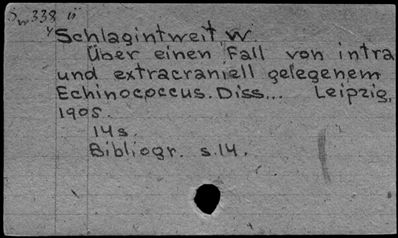 Sw338 ü
Schlagintweit W.
Über einen Fall von intra
und extracraniell gelegenem
Echinococcus. Diss... Leipzig,
1905.
14s.
Bibliogr. s.14.